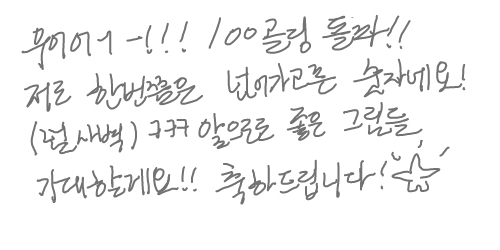 우어어ㅓㅡ!!! 100골딩 돌파!!
저도 한번쯤은 넘어가고픈 숫자네요!
(벌새벽) ㅋㅋㅋ 앞으로도 좋은 그림들
기대할게요!! 축하드립니다!